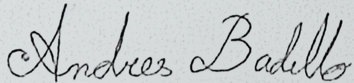 Andres Badillo